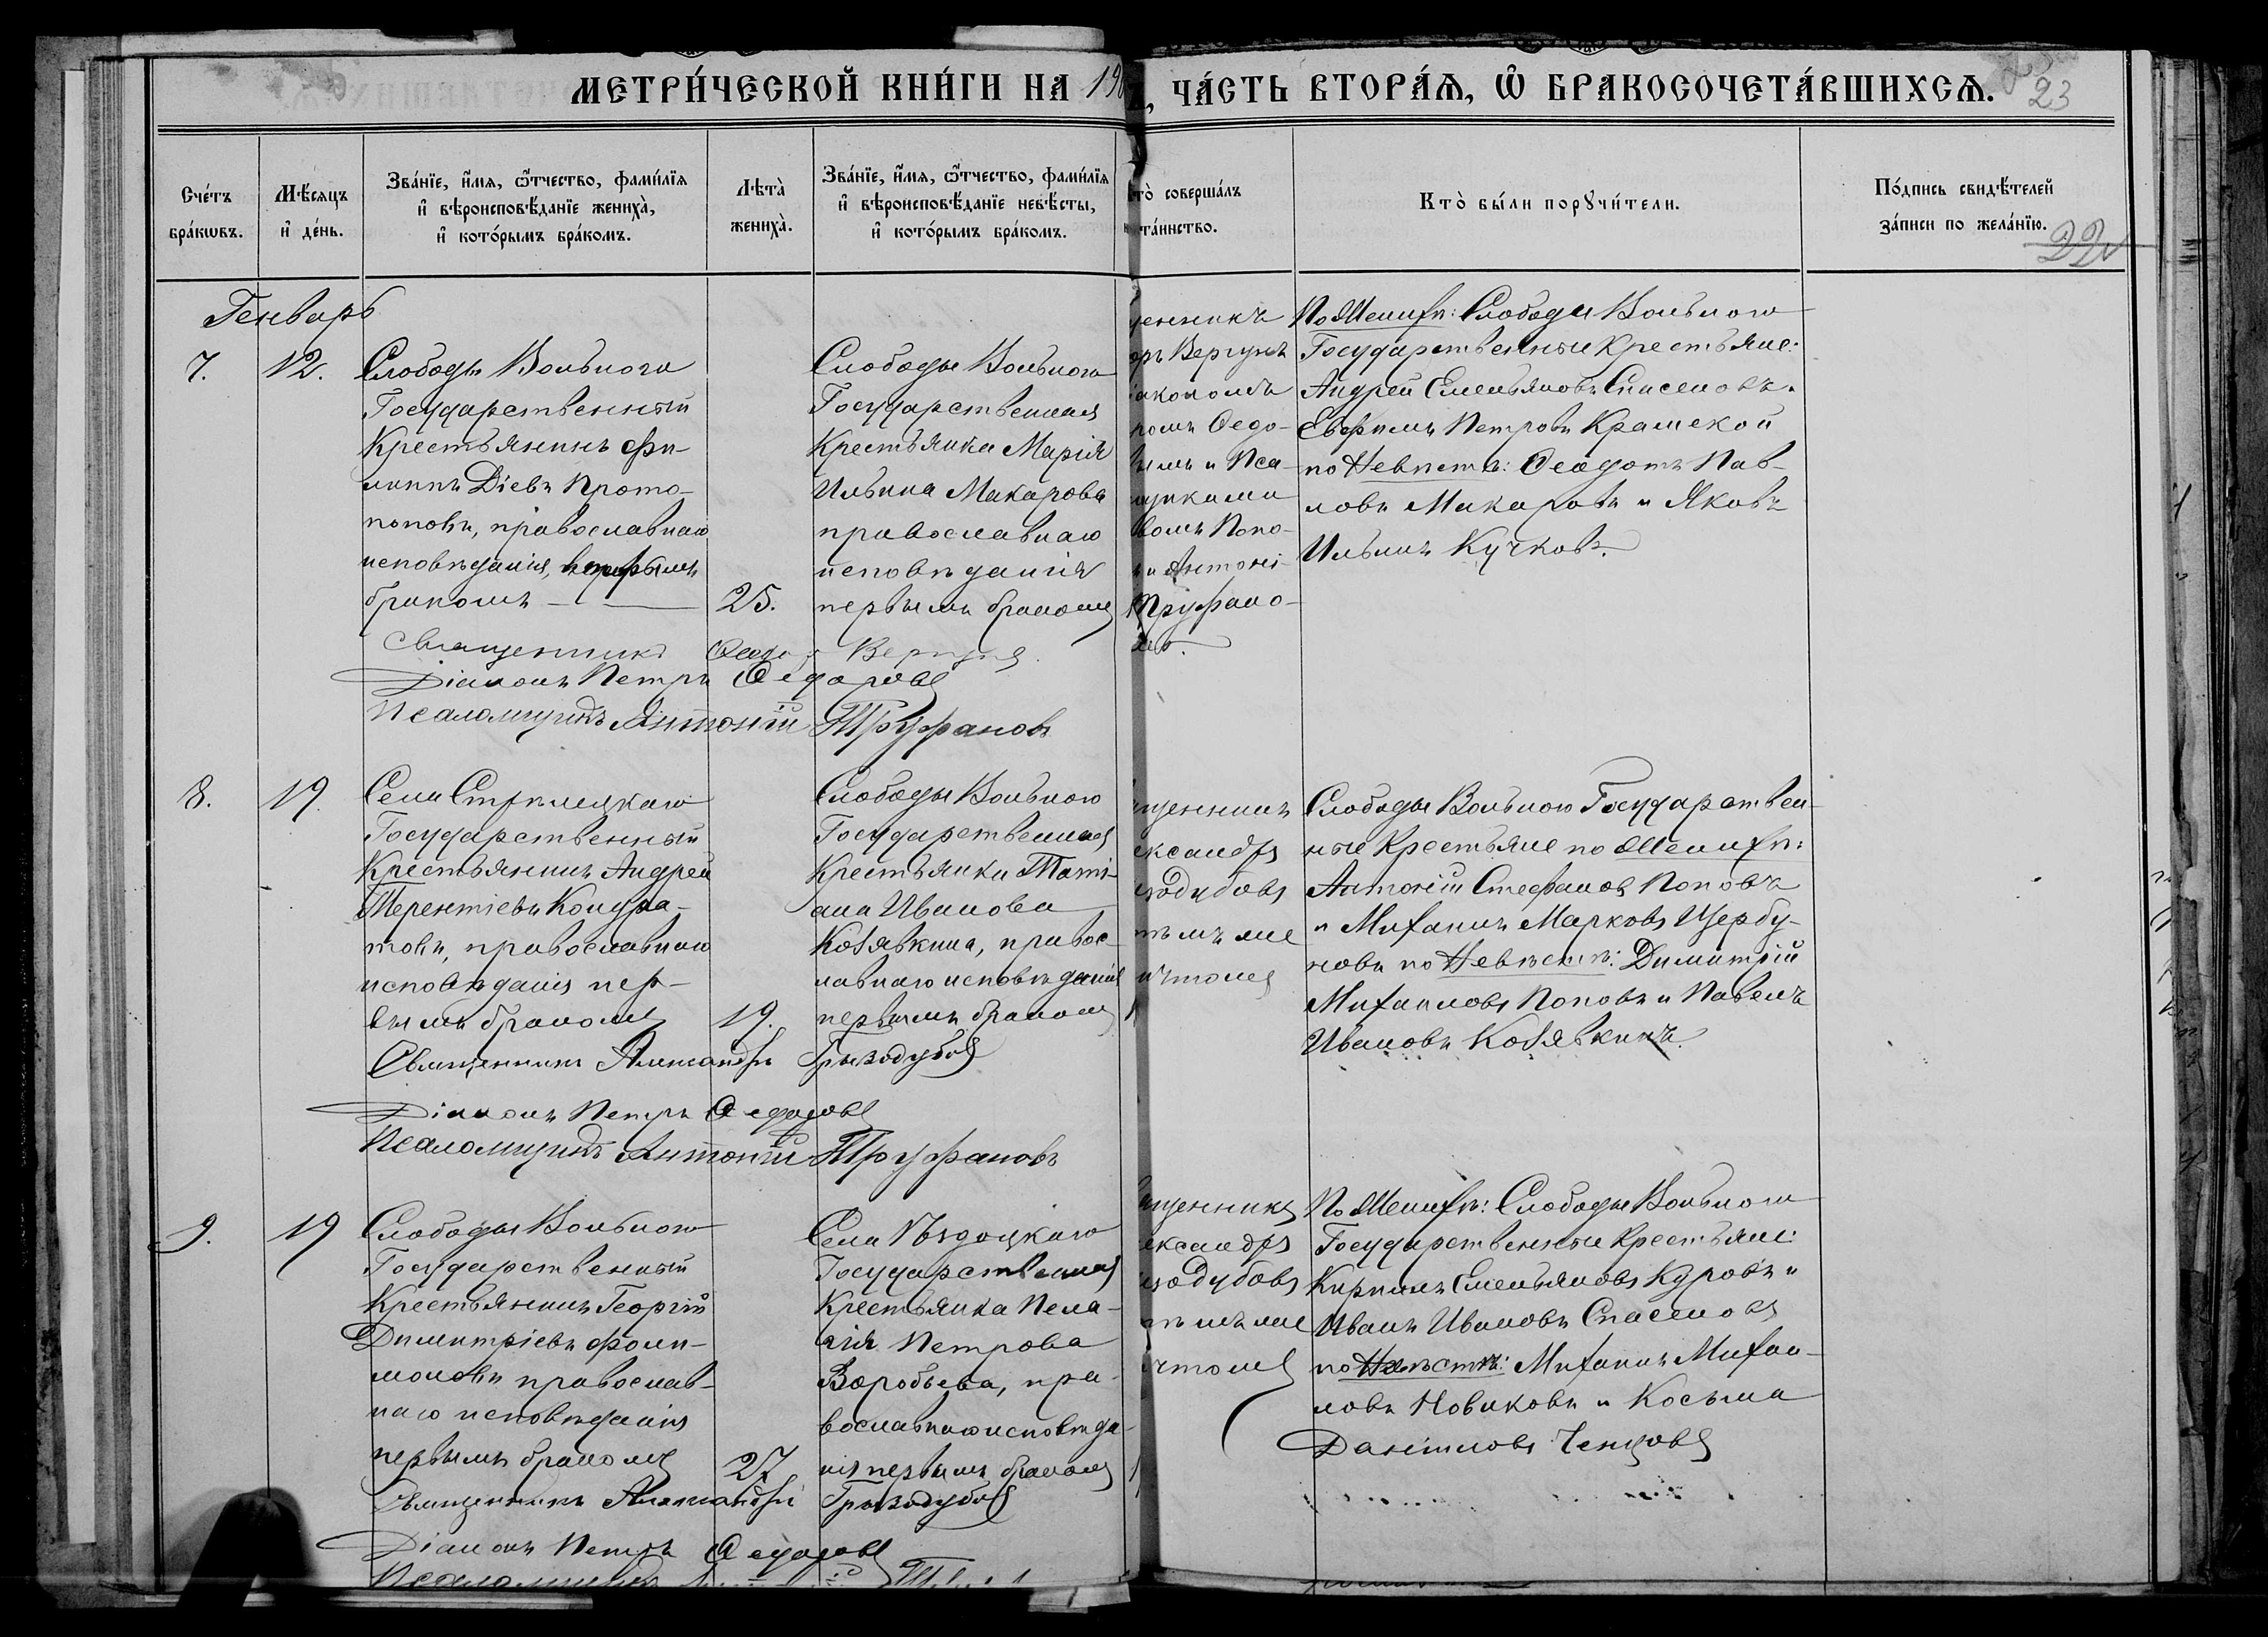 МЕТРИ́ЧЕСКОЙ КНИ́ГИ НА 19
, ЧА́СТЬ ВТОРА́Ѧ, Ѽ БРАКОСОЧЕТА́ВШИХСѦ.
23
Сче́тъ
бра́кѡвъ.
Мѣ́сяцъ
и҆ де́нь.
Зва́нїе, и҆́мѧ, ѻ҆́тчество, фами́лїѧ
и҆ вѣроисповѣ́данїе жениха̀,
и҆ кото́рымъ бра́комъ.
Лѣ́та
жениха̀.
Зва́нїе, и҆́мѧ, ѻ҆́тчество, фами́лїѧ
и҆ вѣроисповѣ́данїе невѣ́сты,
и҆ кото́рымъ бра́комъ.
то̀ соверша́лъ
та́инство.
Кто̀ бы́ли порꙋчи́тели.
По́дпись свидѣ́телей
за́писи по жела́нїю.
22
Генварь
7.
12.
Слободы Вольного
Государственный
Крестьянинъ Фи-
липпъ Діевъ Прото-
поповъ, православнаго
исповѣданія, первымъ
бракомъ
25.
Слободы Вольного
Государственная
Крестьянка Марія
Ильина Макарова
православнаго
исповѣданія
первымъ бракомъ
щенникъ
оръ Вергунъ
іакономъ
ромъ Ѳедо-
вымъ и Пса-
щиками
вомъ Попо-
и Антоні-
Труфано-
вы.
По Женихѣ: Слободы Вольного
Государственные Крестьяне:
Андрей Емельяновъ Спасеновъ.
Евфимъ Петровъ Крамской
по Невѣстѣ: Ѳеодотъ Пав-
ловъ Макаровъ и Яковъ
Ильинъ Кучковъ.
Священникъ Ѳеодоръ Вергунъ.
Діаконъ Петръ Ѳедоровъ
Псаломщикъ Антоній Труфановъ
8.
19.
Села Стрѣлецкаго
Государственный
Крестьянинъ Андрей
Терентіевъ Кондра-
товъ, православнаго
исповѣданія пер-
вымъ бракомъ
19.
Слободы Вольного
Государственная
Крестьянка Таті-
ана Иванова
Козявкина, правос-
лавнаго исповѣданія
первымъ бракомъ
щенникъ
ександръ
зодубовъ
тѣмъ же
ичтомъ
Слободы Вольного Государствен-
ные Крестьяне по Женихѣ:
Антоній Стефановъ Поповъ
и Михаилъ Марковъ Щербу-
новъ по Невѣстѣ: Димитрій
Михаиловъ Поповъ и Павелъ
Ивановъ Козявкинъ.
Священникъ Александръ Грызодубовъ
Діаконъ Петръ Ѳедоровъ
Псаломщикъ Антоній Труфановъ
9.
19
Слободы Вольного
Государственный
Крестьянинъ Георгій
Димитріевъ Фоли-
моновъ православ-
наго исповѣданія
первымъ бракомъ
27
Села
Государственная
Крестьянка Пела-
гія Петрова
Воробьева, пра-
вославнаго исповѣда-
нія первымъ бракомъ
щенникъ
ександръ
зодубовъ
тѣмъ же
чтомъ
По Женихѣ: Слободы Вольного
Государственные Крестьяне:
Кириллъ Емельяновъ Куровъ и
Иванъ Ивановъ Спасеновъ
по Невѣстѣ: Михаилъ Михаи-
ловъ Новиковъ и Косьма
Даніиловъ Ченцовъ
Священникъ Александръ Грызодубовъ
Діаконъ Петръ Ѳедоровъ
Псаломщикъ